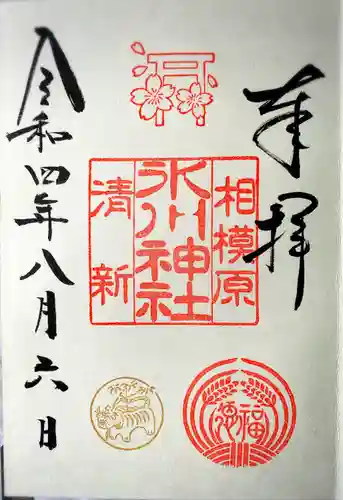 奉拝
相模原
氷川神社
清新
令和四年八月六日
福徳